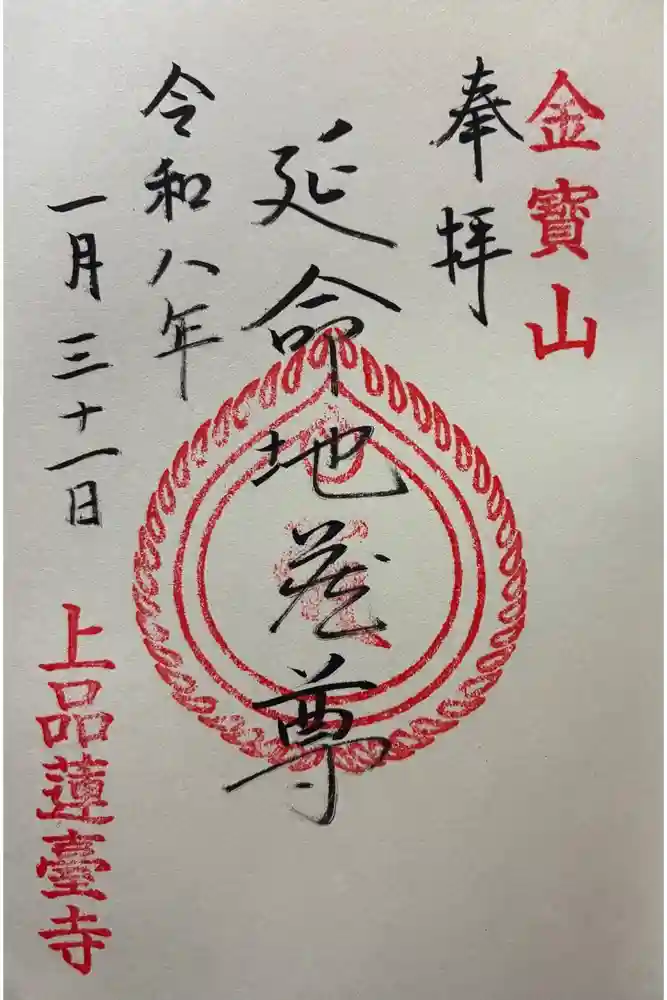 金寶山
奉拝
延命地蔵尊
令和八年
一月三十一日
上品蓮臺寺